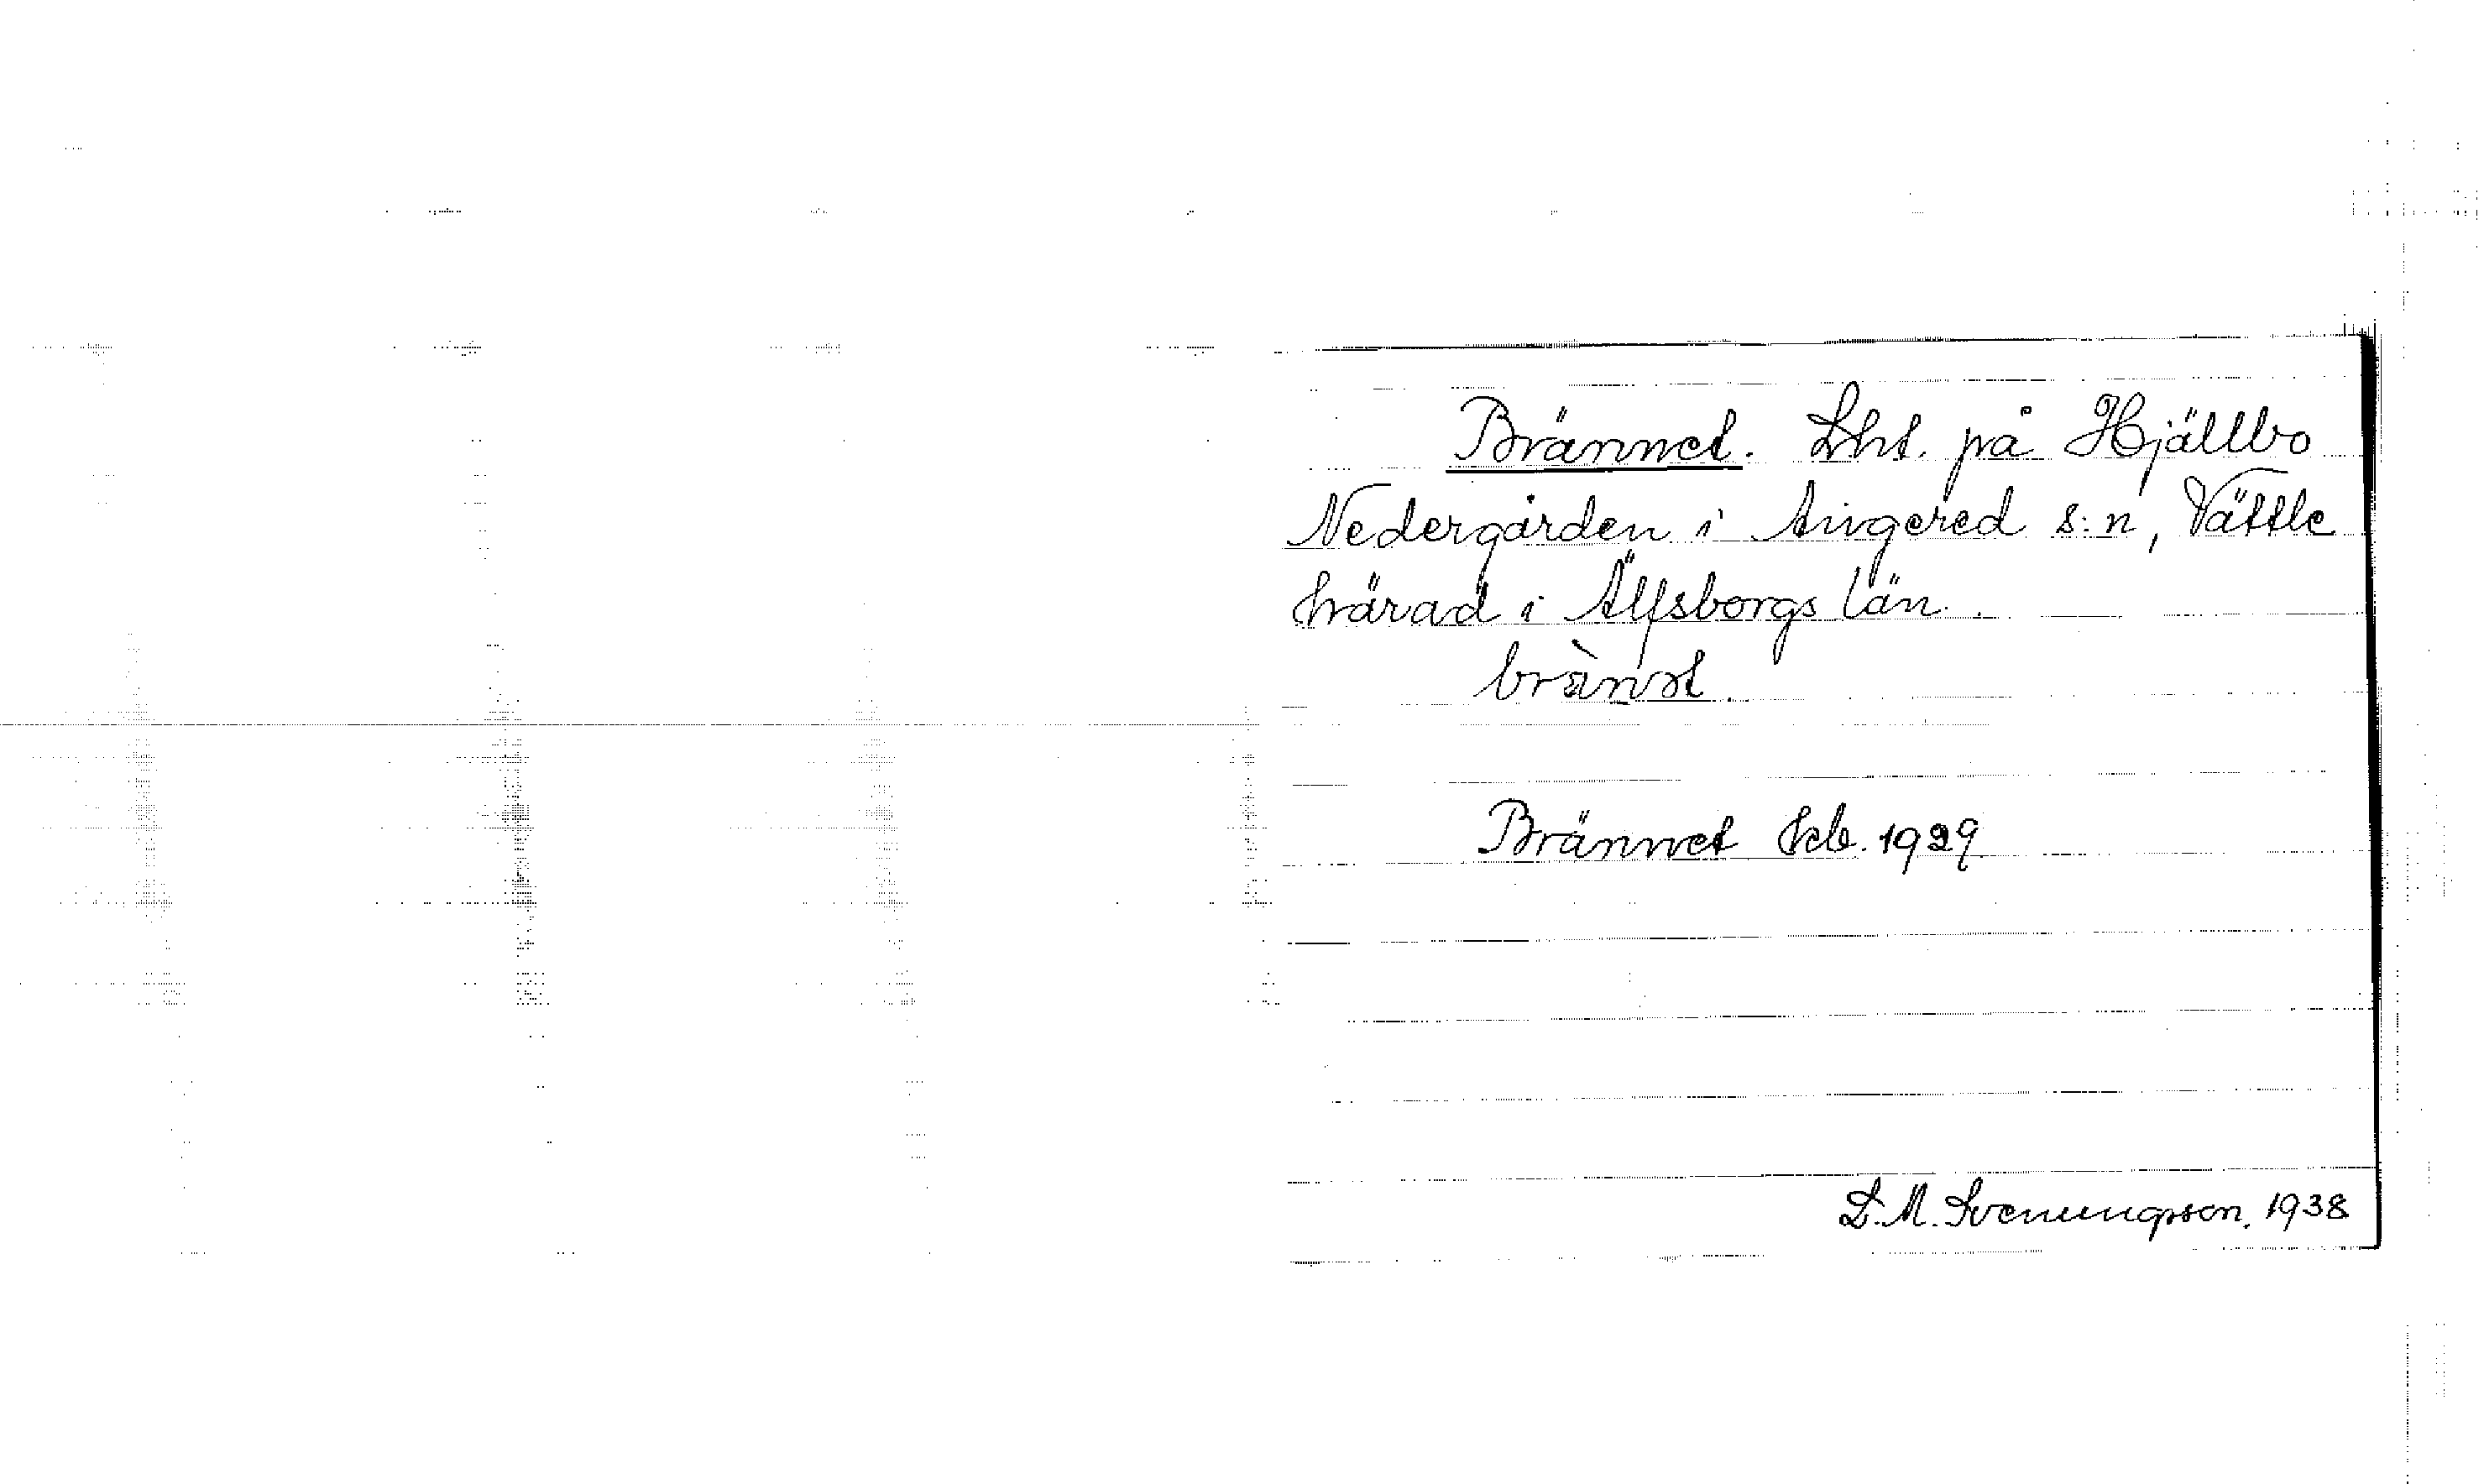 Brännet. Lht. på Hjällbo
Nedergården i Angered s:n, Vättle
härad i Älfsborgs län.
Brännet Jcb. 1929
D.M. Svenungsson, 1938